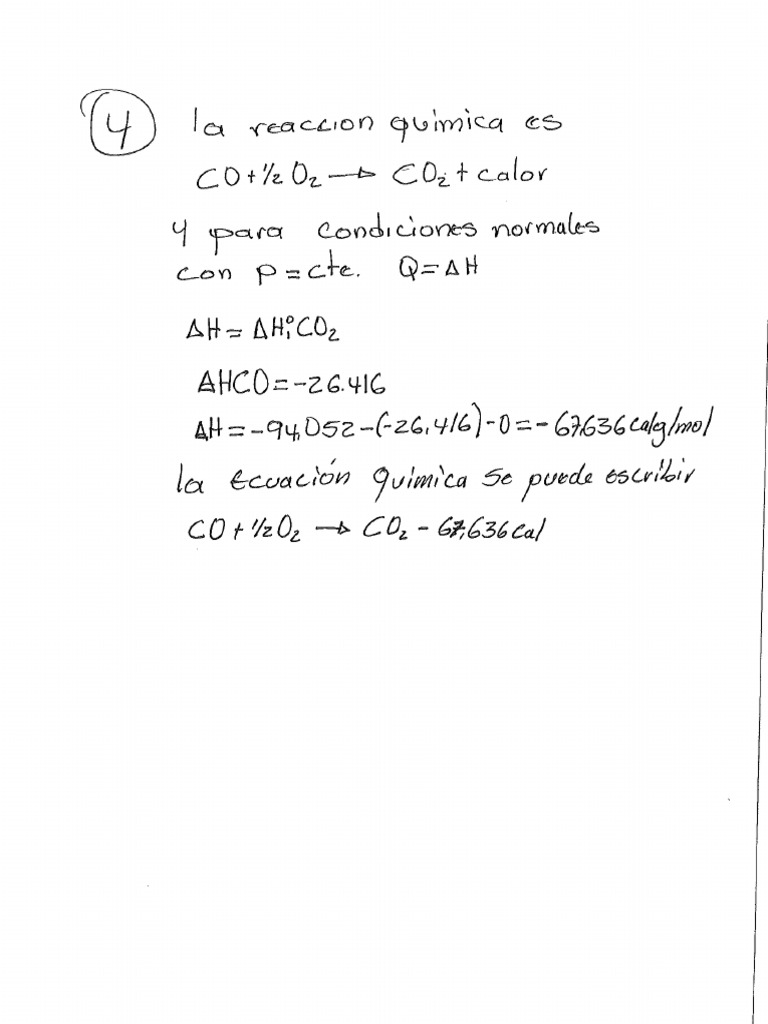 4 la reaccion química es
CO + 1/2 O₂ → CO₂ + calor
y para condiciones normales
con p = cte. Q = ΔH
ΔH = ΔH₁° CO₂
ΔHCO = -26.416
ΔH = -94,052 - (-26,416) - 0 = - 67,636 calg/mol
la Ecuación química se puede escribir
CO + 1/2 O₂ → CO₂ - 67,636 Cal